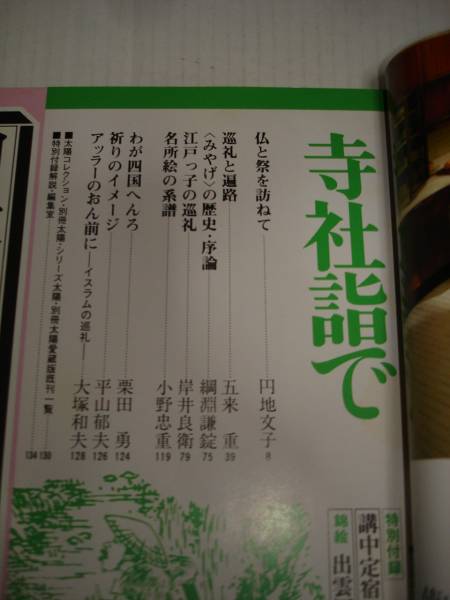 寺社詣で
仏と祭を訪ねて 円地文子 8
巡礼と遍路 五来 重 39
〈みやげ〉の歴史・序論 綱淵謙錠 75
江戸っ子の巡礼 岸井良衛 79
名所絵の系譜 小野忠重 119
わが四国へんろ 栗田 勇 124
祈りのイメージ 平山郁夫 126
アッラーのおん前に―イスラムの巡礼― 大塚和夫 128
■太陽コレクション・別冊太陽・シリーズ太陽・別冊太陽愛蔵版既刊一覧 130
■特別付録解説・編集室 134
特別付録
講中定宿
錦絵 出雲